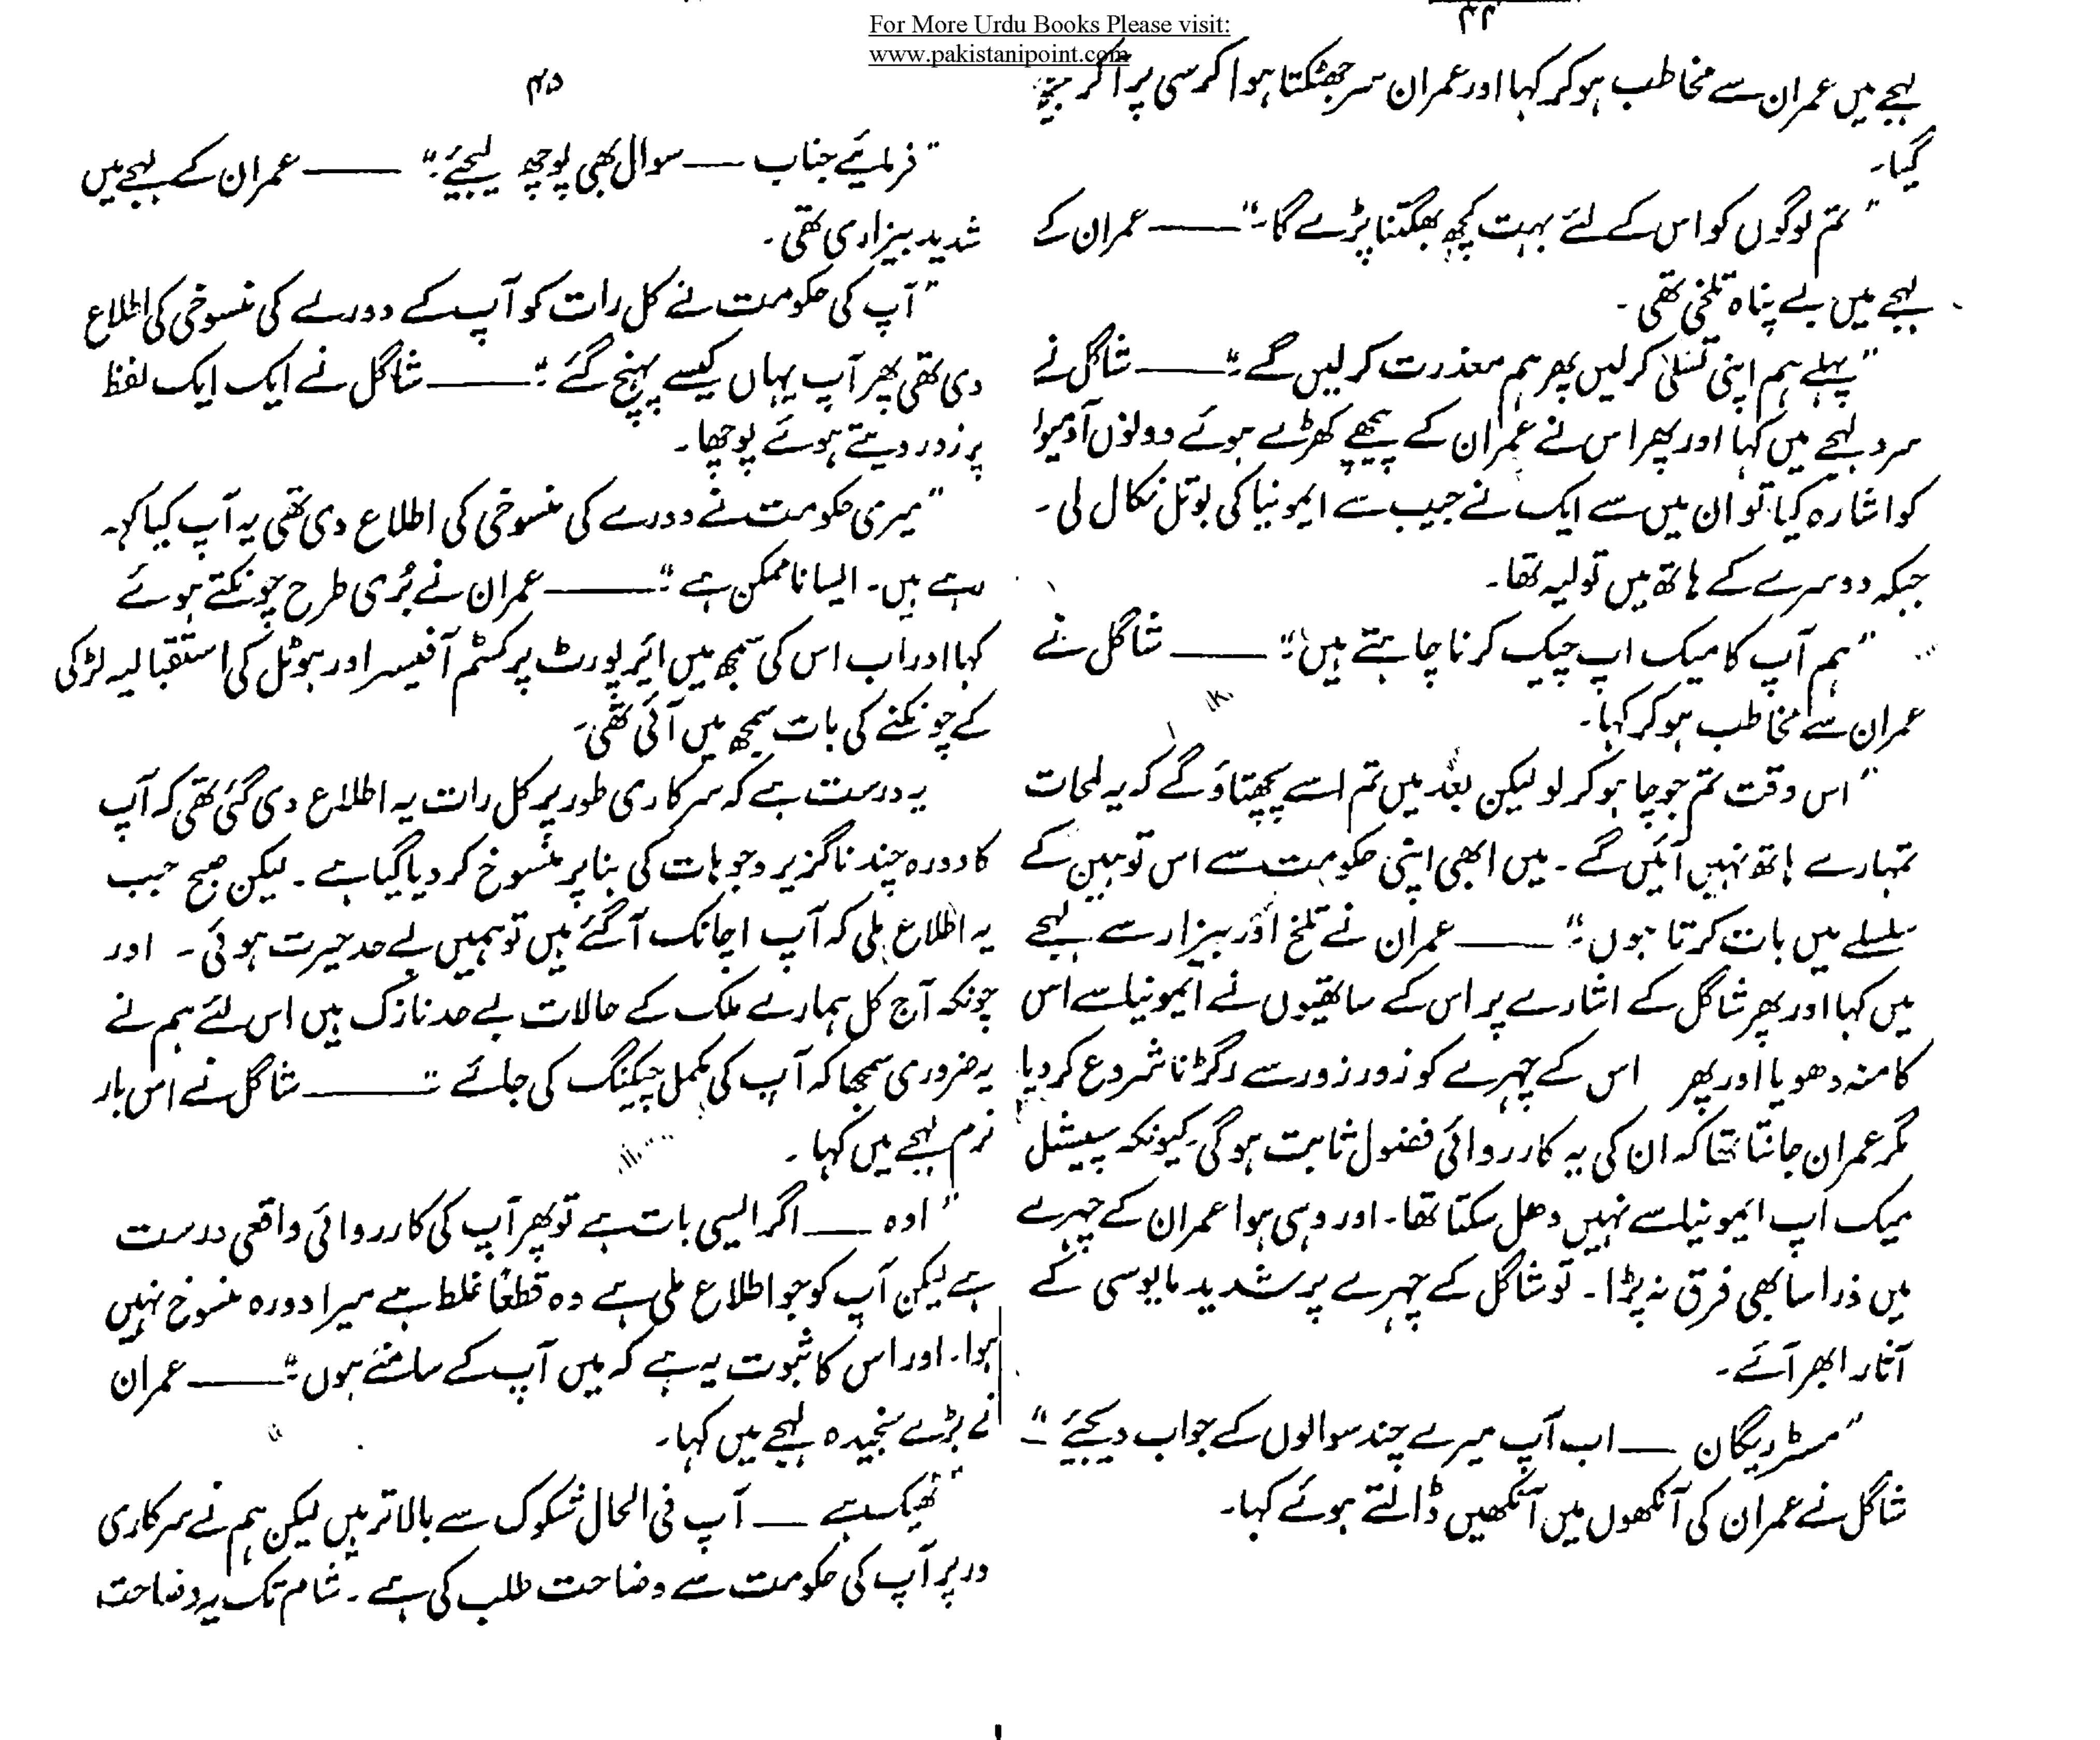 For More Urdu Books Please visit:
www.pakistanipoint.com
۴۴
لہجے میں عمران سے مخاطب ہو کر کہا اور عمران سر جھٹکتا ہوا کرسی پر آ کر بیٹھ
گیا۔
"تم لوگوں کو اس کے لئے بہت کچھ بھگتنا پڑے گا۔" —— عمران کے
لہجے میں بے پناہ تلخی تھی۔
"پہلے ہم اپنی تسلی کر لیں پھر ہم معذرت کر لیں گے۔" —— شاگل نے
سرد لہجے میں کہا اور پھر اس نے عمران کے پیچھے کھڑے ہوئے دونوں آدمیوں
کو اشارہ کیا تو ان میں سے ایک نے جیب سے ایمونیا کی بوتل نکال لی۔
جبکہ دوسرے کے ہاتھ میں تولیہ تھا۔
"ہم آپ کا میک اپ چیک کرنا چاہتے ہیں۔" —— شاگل نے
عمران سے مخاطب ہو کر کہا۔
"اس وقت تم جو چاہو کر لو لیکن بعد میں تم اسے پچھتاؤ گے کہ یہ لمحات
تمہارے ہاتھ نہیں آئیں گے۔ میں ابھی اپنی حکومت سے اس توہین کے
سلسلے میں بات کرتا ہوں۔" —— عمران نے تلخ اور بیزار سے لہجے
میں کہا اور پھر شاگل کے اشارے پر اس کے ساتھیوں نے ایمونیا سے اس
کا منہ دھویا اور پھر اس کے چہرے کو زور زور سے رگڑنا شروع کر دیا
مگر عمران جانتا تھا کہ ان کی یہ کارروائی فضول ثابت ہو گی۔ کیونکہ سپیشل
میک اپ ایمونیا سے نہیں دھل سکتا تھا۔ اور وہی ہوا عمران کے چہرے
میں ذرا سا بھی فرق نہ پڑا۔ تو شاگل کے چہرے پر شدید مایوسی کے
آثار ابھر آئے۔
"مسٹر ریگان —— اب آپ میرے چند سوالوں کے جواب دیجئے۔"
شاگل نے عمران کی آنکھوں میں آنکھیں ڈالتے ہوئے کہا۔
۴۵
"فرمائیے جناب —— سوال بھی پوچھ لیجئے۔" —— عمران کے لہجے میں
شدید بیزاری تھی۔
"آپ کی حکومت نے کل رات کو آپ کے دورے کی منسوخی کی اطلاع
دی تھی پھر آپ یہاں کیسے پہنچ گئے۔" —— شاگل نے ایک ایک لفظ
پر زور دیتے ہوئے پوچھا۔
"میری حکومت نے دورے کی منسوخی کی اطلاع دی تھی یہ آپ کیا کہہ
رہے ہیں۔ ایسا ناممکن ہے۔" —— عمران نے بُری طرح چونکتے ہوئے
کہا اور اب اس کی سمجھ میں ائیرپورٹ پر کسٹم آفیسر اور ہوٹل کی استقبالیہ لڑکی
کے چونکنے کی بات سمجھ میں آئی تھی۔
یہ درست ہے کہ سرکاری طور پر کل رات یہ اطلاع دی گئی تھی کہ آپ
کا دورہ چند ناگزیر وجوہات کی بنا پر منسوخ کر دیا گیا ہے۔ لیکن صبح جب
یہ اطلاع ملی کہ آپ اچانک آ گئے ہیں تو ہمیں بے حد حیرت ہوئی۔ اور
چونکہ آج کل ہمارے ملک کے حالات بے حد نازک ہیں اس لئے ہم نے
یہ ضروری سمجھا کہ آپ کی مکمل چیکنگ کی جائے" —— شاگل نے اس بار
نرم لہجے میں کہا۔
"اوہ —— اگر ایسی بات ہے تو پھر آپ کی کارروائی واقعی درست
ہے لیکن آپ کو جو اطلاع ملی ہے وہ قطعاً غلط ہے میرا دورہ منسوخ نہیں
ہوا۔ اور اس کا ثبوت یہ ہے کہ میں آپ کے سامنے ہوں۔" —— عمران
نے بڑے سنجیدہ لہجے میں کہا۔
"ٹھیک ہے —— آپ فی الحال شکوک سے بالاتر ہیں لیکن ہم نے سرکاری
در پر آپ کی حکومت سے وضاحت طلب کی ہے۔ شام تک یہ وضاحت